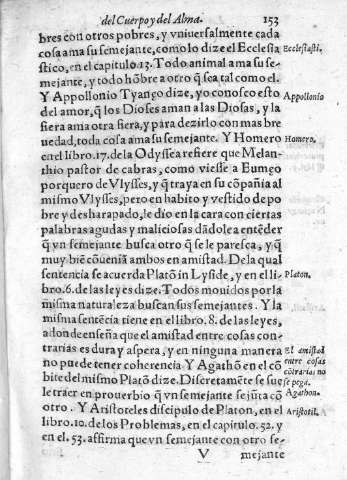 del Cuerpo y del Alma. 153
bres con otros pobres, y vniuersalmente cada
cosa ama su semejante, como lo dize el Ecclesia Ecclesiasti.
stico, en el capitulo. 13. Todo animal ama su se
mejante, y todo hõbre a otro q̃ sea tal como el.
Y Appollonio Tyango dize, yo conosco esto Appollonio
del amor, q̃ los Dioses aman a las Diosas, y la
fiera ama otra fiera, y para dezirlo con mas bre
uedad, toda cosa ama su semejante. Y Homero Homero.
en el libro. 17. de la Odyssea refiere que Melan-
thio pastor de cabras, como viesse a Eumeo
porquero de Vlysses, y q̃ traya en su cõpañia al
mismo Vlysses, pero en habito y vestido de po
bre y desharapado, le dio en la cara con ciertas
palabras agudas y maliciosas dãdole a entẽder
q̃ vn semejante busca otro q̃ se le paresca, y q̃
muy biẽ cõuenia ambos en amistad. De la qual
sentencia se acuerda Platõ in Lyside, y en el li- Platon.
bro. 6. de las leyes dize. Todos mouidos por la
misma naturaleza buscan sus semejantes. Y la
misma sentẽcia tiene en el libro. 8. de las leyes,
adonde enseña que el amistad entre cosas con-
trarias es dura y aspera, y en ninguna manera El amistad
no puede tener coherencia. Y Agathõ en el cõ entre cosas
bite del mismo Platõ dize. Discretamẽte se sue cõtrarias no
le traer en prouerbio q̃ vn semejante se jũta cõ se pega.
otro. Y Aristoteles discipulo de Platon, en el Agathon.
libro. 10. de los Problemas, en el capitulo. 52. y Aristotil.
en el. 53. affirma que vn semejante con otro se-
V mejante